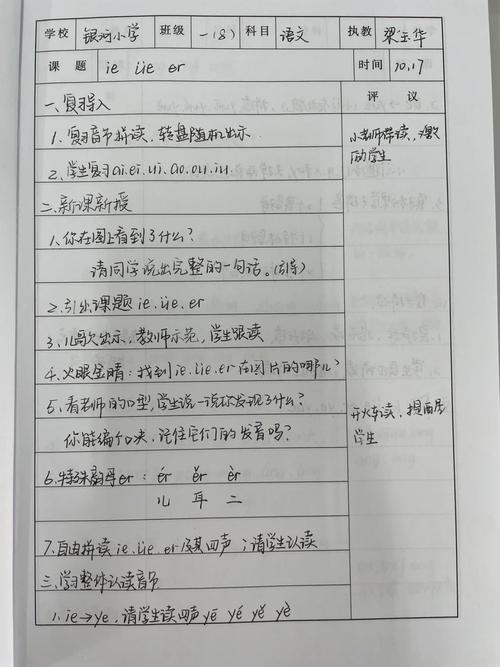 学校 银河小学 班级 一(8) 科目 语文 执教 梁玉华
课题 ie üe er 时间 10.17
一.复习导入 评议
1.复习音节拼读,转盘随机出示 小老师带读,激
励学生
2.学生复习ai.ei.ui.ao.ou.iu
二.新课新授
1.你在图上看到了什么?
请同学说出完整的一句话。(引导)
2.引出课题ie.üe.er
3.儿歌出示,教师示范,学生跟读
4.火眼金睛:找到ie.üe.er在图片的哪儿?
5.看老师的口型,学生说一说你发现了什么? 开火车读,提醒
学生
你能编个口诀,记住它们的发音吗?
6.特殊韵母er: ér ěr èr
儿 耳 二
7.自由拼读ie.üe.er及其四声;请学生认读
三.学习整体认读音节
1.ie→ye,请学生读四声yē yé yě yè